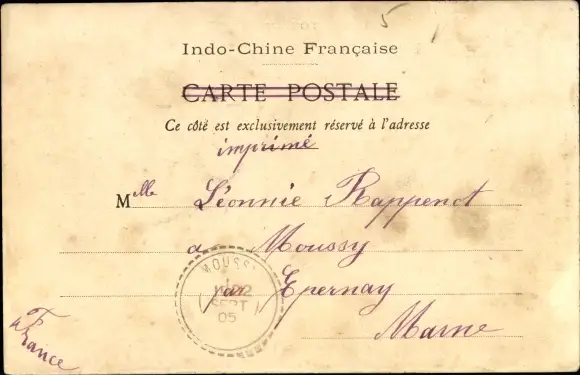 5
Indo-Chine Française
CARTE POSTALE
Ce côté est exclusivement réservé à l'adresse
imprimé
Mlle Léonnie Rappenot
a Moussy
par Epernay
Marne
France
MOUSSY
22
SEPT
05